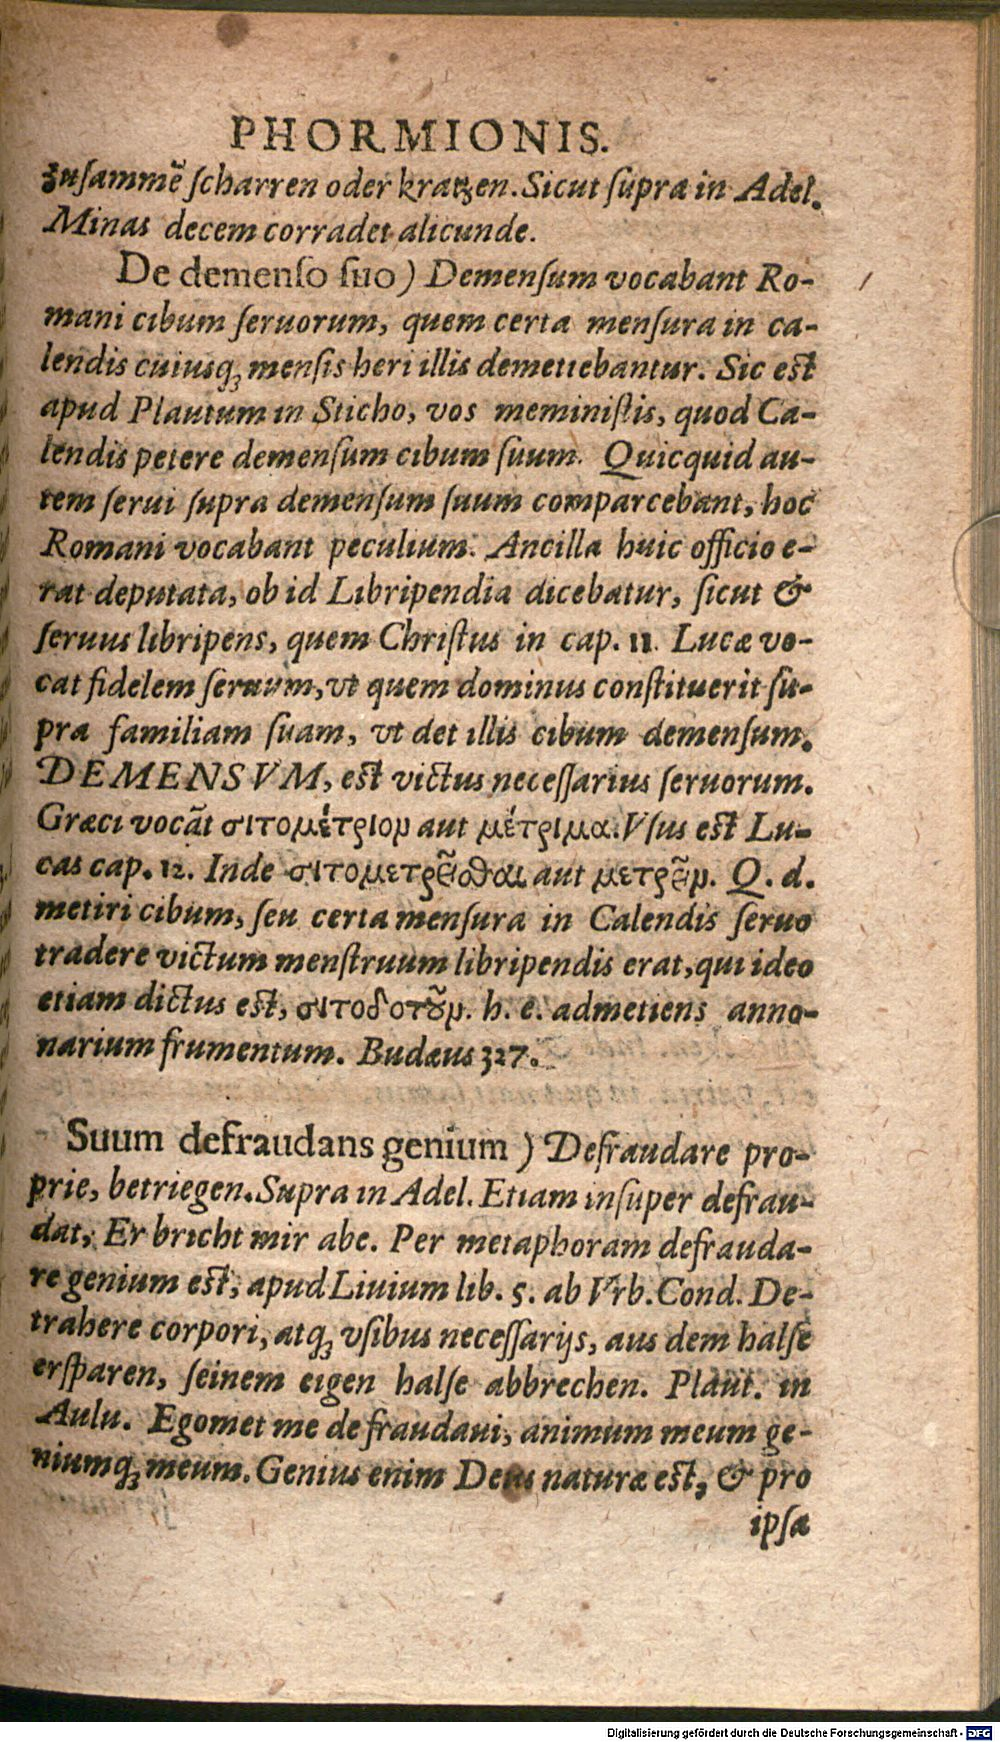 PHORMIONIS.
zuſammẽ ſcharren oder kratzen. Sicut ſupra in Adel.
Minas decem corradet alicunde.
De demenſo ſuo) Demenſum vocabant Ro-
mani cibum ſeruorum, quem certa menſura in ca-
lendis cuiusq; menſis heri illis demetiebantur. Sic eſt
apud Plautum in Sticho, vos meminiſtis, quod Ca-
lendis petere demenſum cibum ſuum. Quicquid au-
tem ſerui ſupra demenſum ſuum comparcebant, hoc
Romani vocabant peculium. Ancilla huic officio e-
rat deputata, ob id Libripendia dicebatur, ſicut &
ſeruus libripens, quem Chriſtus in cap. 11. Lucæ vo-
cat fidelem ſeruum, vt quem dominus conſtituerit ſu-
pra familiam ſuam, vt det illis cibum demenſum.
DEMENSVM, eſt victus neceſſarius ſeruorum.
Græci vocãt σιτομέτριον aut μέτριμα. Vſus eſt Lu-
cas cap. 12. Inde σιτομετρεῖσθαι aut μετρεῖν. Q. d.
metiri cibum, ſeu certa menſura in Calendis ſeruo
tradere victum menſtruum libripendis erat, qui ideo
etiam dictus eſt, σιτοδοτοῦν. h. e. admetiens anno-
narium frumentum. Budæus 327.
Suum defraudans genium ) Defraudare pro-
prie, betriegen. Supra in Adel. Etiam inſuper defrau-
dat, Er bricht mir abe. Per metaphoram defrauda-
re genium eſt, apud Liuium lib. 5. ab Vrb. Cond. De-
trahere corpori, atq; vſibus neceſſarijs, aus dem halſe
erſparen, ſeinem eigen halſe abbrechen. Plaut. in
Aulu. Egomet me defraudaui, animum meum ge-
niumq; meum. Genius enim Deus naturæ eſt, & pro
ipſa
Digitalisierung gefördert durch die Deutsche Forschungsgemeinschaft - DFG